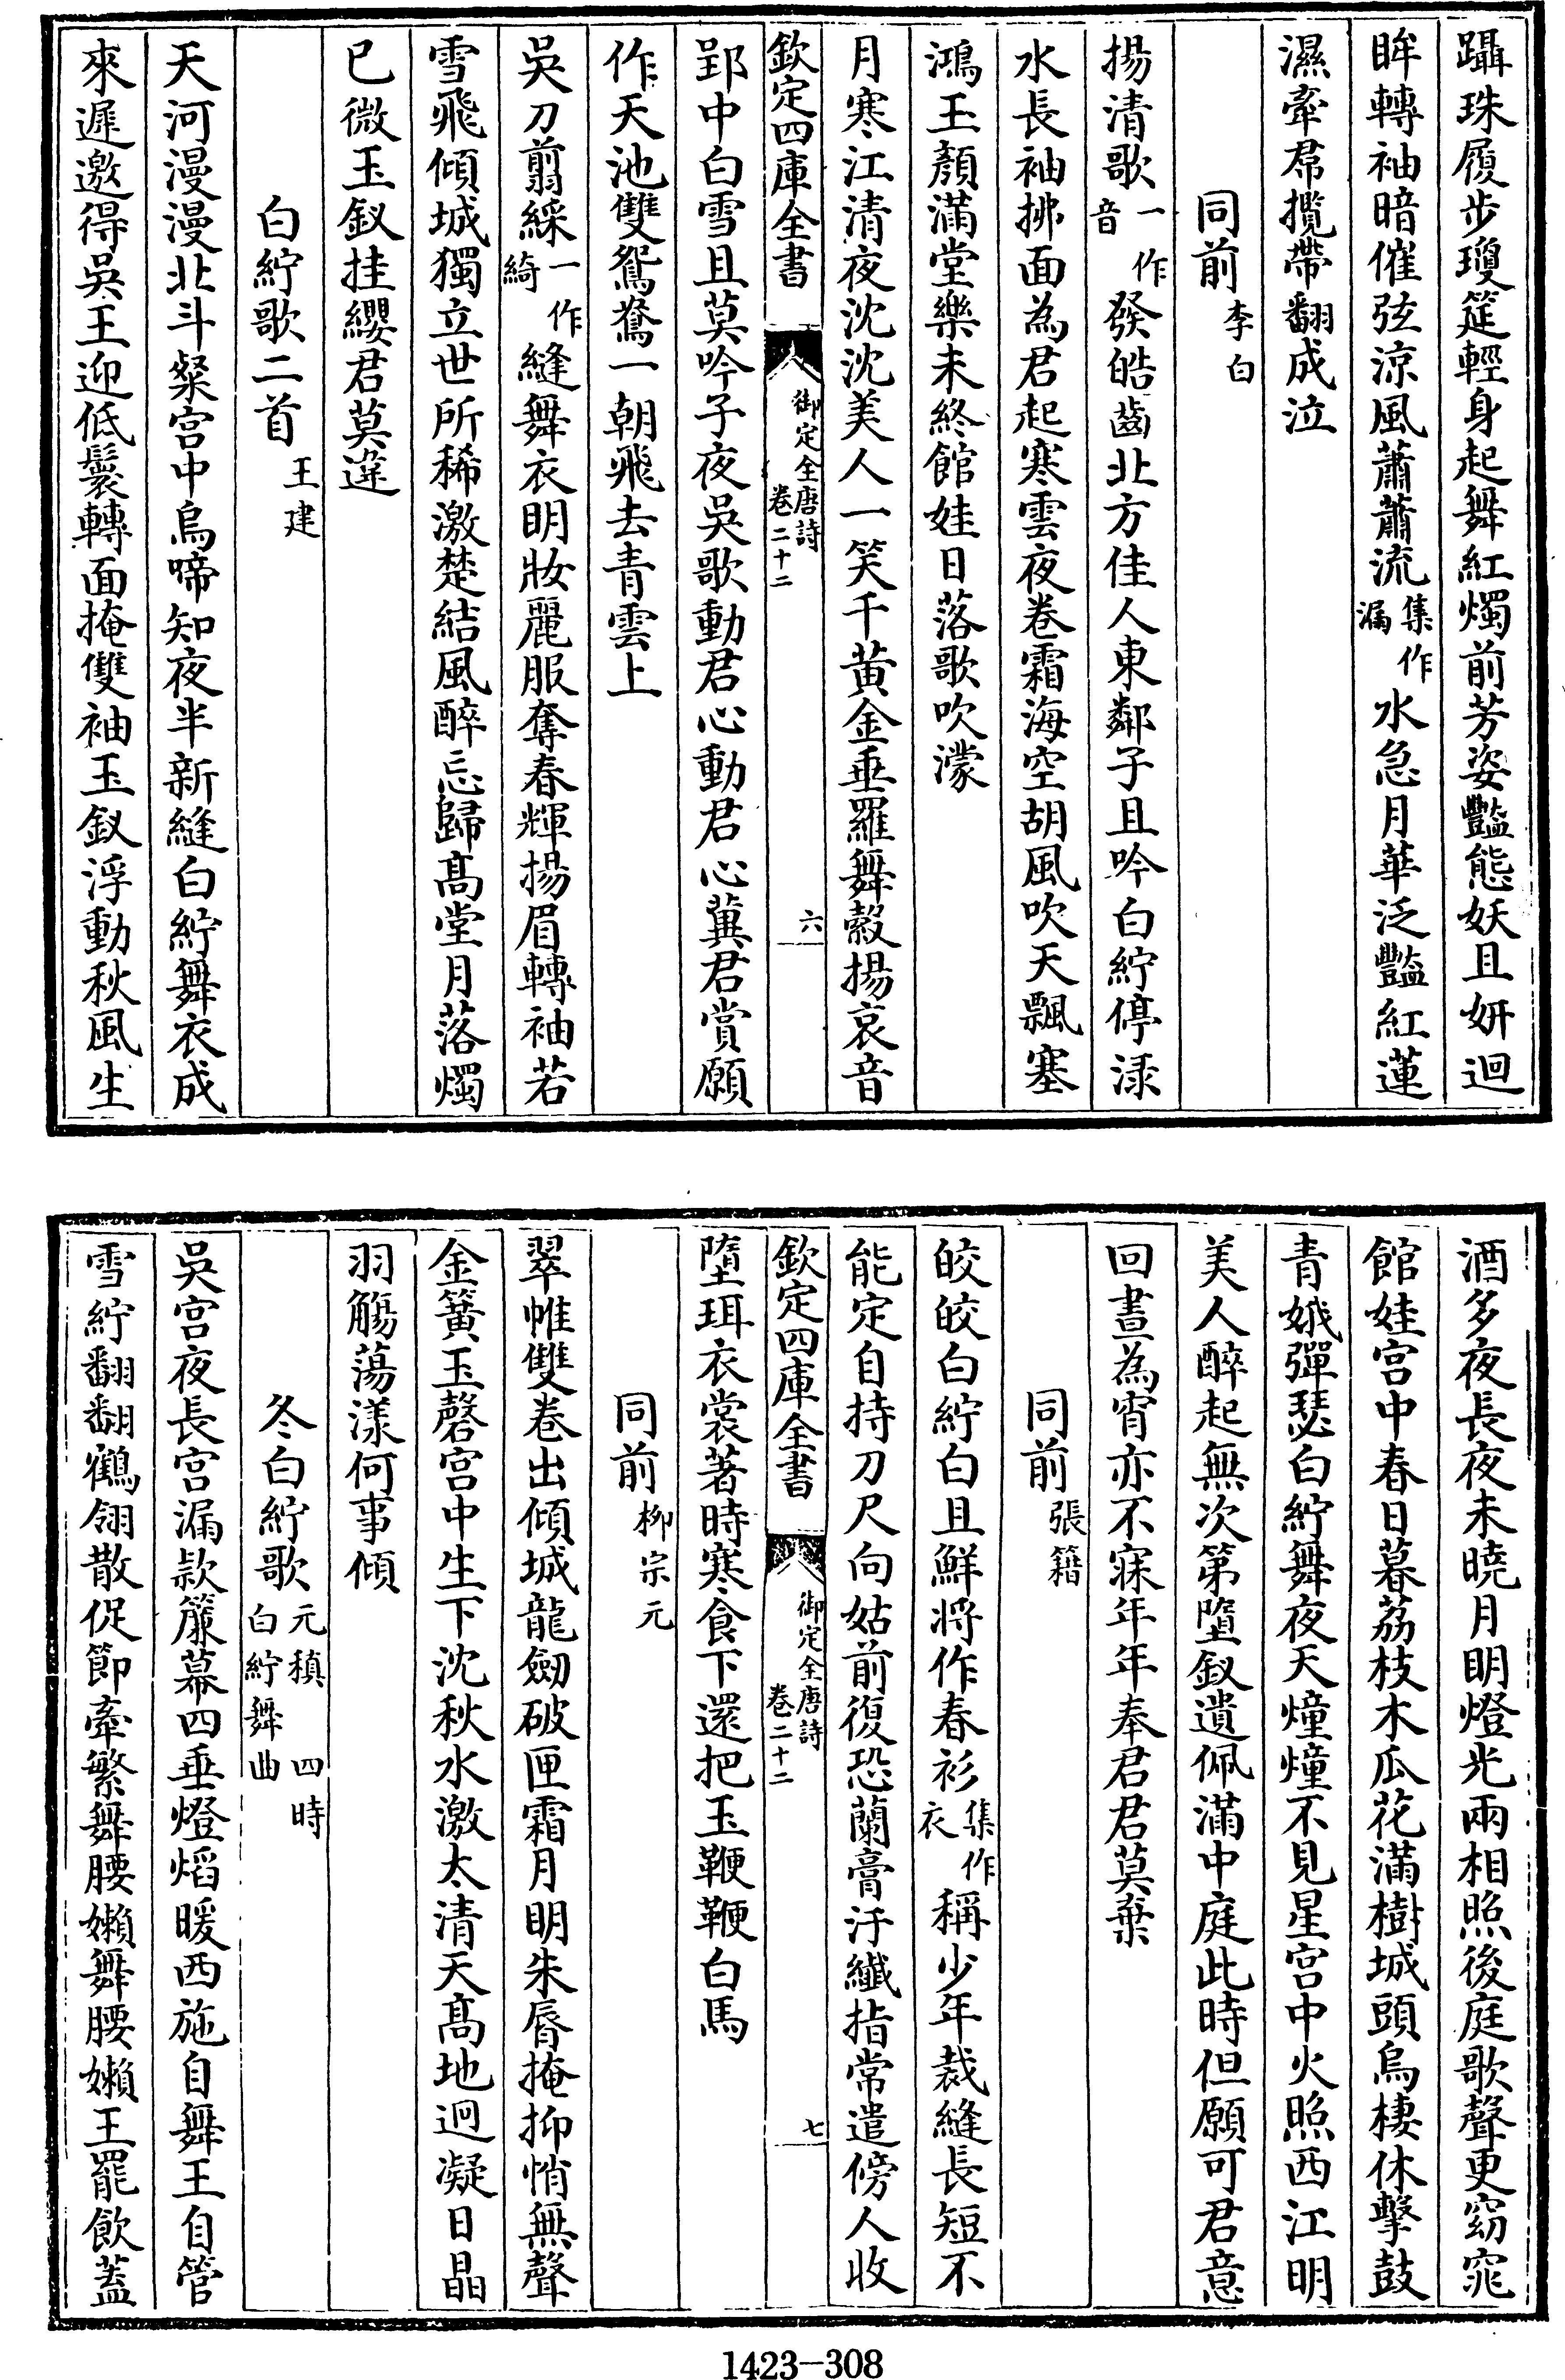 躡珠履步瓊筵輕身起舞紅燭前芳姿豔態妖且妍迴
眸轉袖暗催弦涼風蕭蕭流集作漏水急月華泛豔紅蓮
濕牽帬攬帶翻成泣
同前李白
揚清歌一作音發皓齒北方佳人東鄰子且吟白紵停渌
水長袖拂面為君起寒雲夜卷霜海空胡風吹天飄塞
鴻玉顏滿堂樂未終館娃日落歌吹濛
月寒江清夜沈沈美人一笑千黄金垂羅舞縠揚哀音
欽定四庫全書 御定全唐詩卷二十二 六
郢中白雪且莫吟子夜吳歌動君心動君心冀君賞願
作天池雙鴛鴦一朝飛去青雲上
吳刀翦綵一作綺縫舞衣明妝麗服奪春輝揚眉轉袖若
雪飛傾城獨立世所稀激楚結風醉忘歸髙堂月落燭
已微玉釵挂纓君莫違
白紵歌二首王建
天河漫漫北斗粲宫中烏啼知夜半新縫白紵舞衣成
來遲邀得吳王迎低鬟轉面掩雙袖玉釵浮動秋風生
酒多夜長夜未曉月明燈光兩相照後庭歌聲更窈窕
館娃宫中春日暮荔枝木瓜花滿樹城頭烏棲休擊鼓
青娥彈瑟白紵舞夜天㷫㷫不見星宫中火照西江明
美人醉起無次第墮釵遺佩滿中庭此時但願可君意
回晝為宵亦不寐年年奉君君莫棄
同前張籍
皎皎白紵白且鮮將作春衫集作衣稱少年裁縫長短不
能定自持刀尺向姑前復恐蘭膏汙纖指常遣傍人收
欽定四庫全書 御定全唐詩卷二十二 七
墮珥衣裳著時寒食下還把玉鞭鞭白馬
同前柳宗元
翠帷雙卷出傾城龍劒破匣霜月明朱脣掩抑悄無聲
金簧玉磬宫中生下沈秋水激太清天髙地迥凝日晶
羽觴蕩漾何事傾
冬白紵歌元稹 四時白紵舞曲
吳宫夜長宫漏款簾幕四垂燈熖暖西施自舞王自管
雪紵翻翻鶴翎散促節牽繁舞腰嬾舞腰嬾王罷飲蓋
1423—308